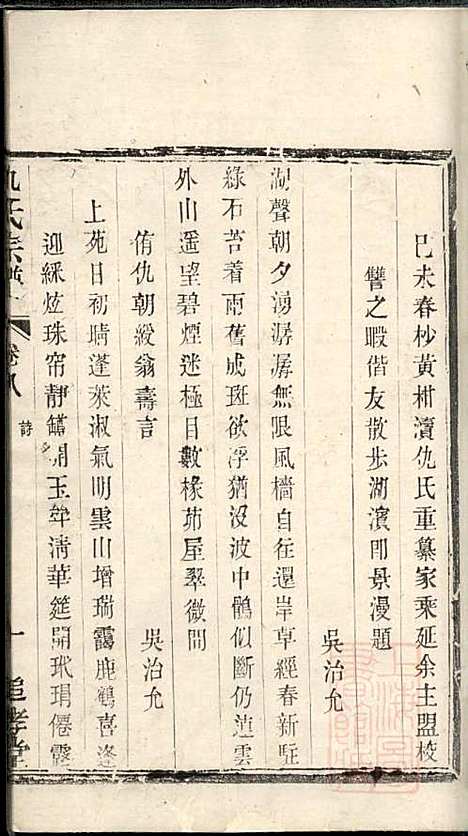 己未春杪黃柑瀆仇氏重纂家乘延余主盟校
讐之暇偕友散步湖濱即景漫題
吳治允
湖聲朝夕湧潺潺無限風檣自往還岸草經春新駐
綠石苔着雨舊成斑欲浮猶沒波中鶴似斷仍連雲
外山遥望碧煙迷極目數椽茆屋翠微間
侑仇朝綬翁壽言
吳治允
上苑日初晴蓬萊淑氣明雲山增瑞靄鹿鶴喜逢
迎綵炫珠帘靜鐃開玉笄清華筵開玳瑁僊醪
仇氏宗譜
卷八
詩
一
追孝堂